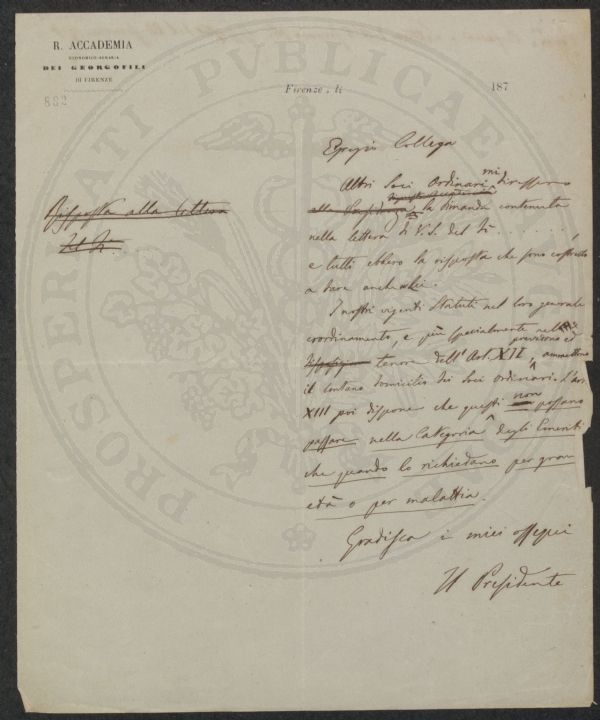 R. ACCADEMIA
ECONOMICO-AGRARIA
DEI GEORGOFILI
DI FIRENZE
882
Firenze, li 187
Risposta alla lettera
del dì
Egregio Collega
Altri Soci Ordinari mi diressero
alla la dimanda contenuta
nella lettera di V.S. del dì . . . . . . ,
e tutti ebbero la risposta che sono costretto
a dare anche a lei.
I nostri vigenti Statuti nel loro generale
coordinamento, e più specialmente nel
tenore dell'Art. XII, prevedono ed ammettono
il lontano domicilio dei Soci ordinari. L'art.
XIII poi dispone che questi non possano
passare nella Categoria degli Emeriti
che quando lo richiedano per gran
età o per malattia.
Gradisca i miei ossequi
Il Presidente
PROSPERITATI PUBLICAE